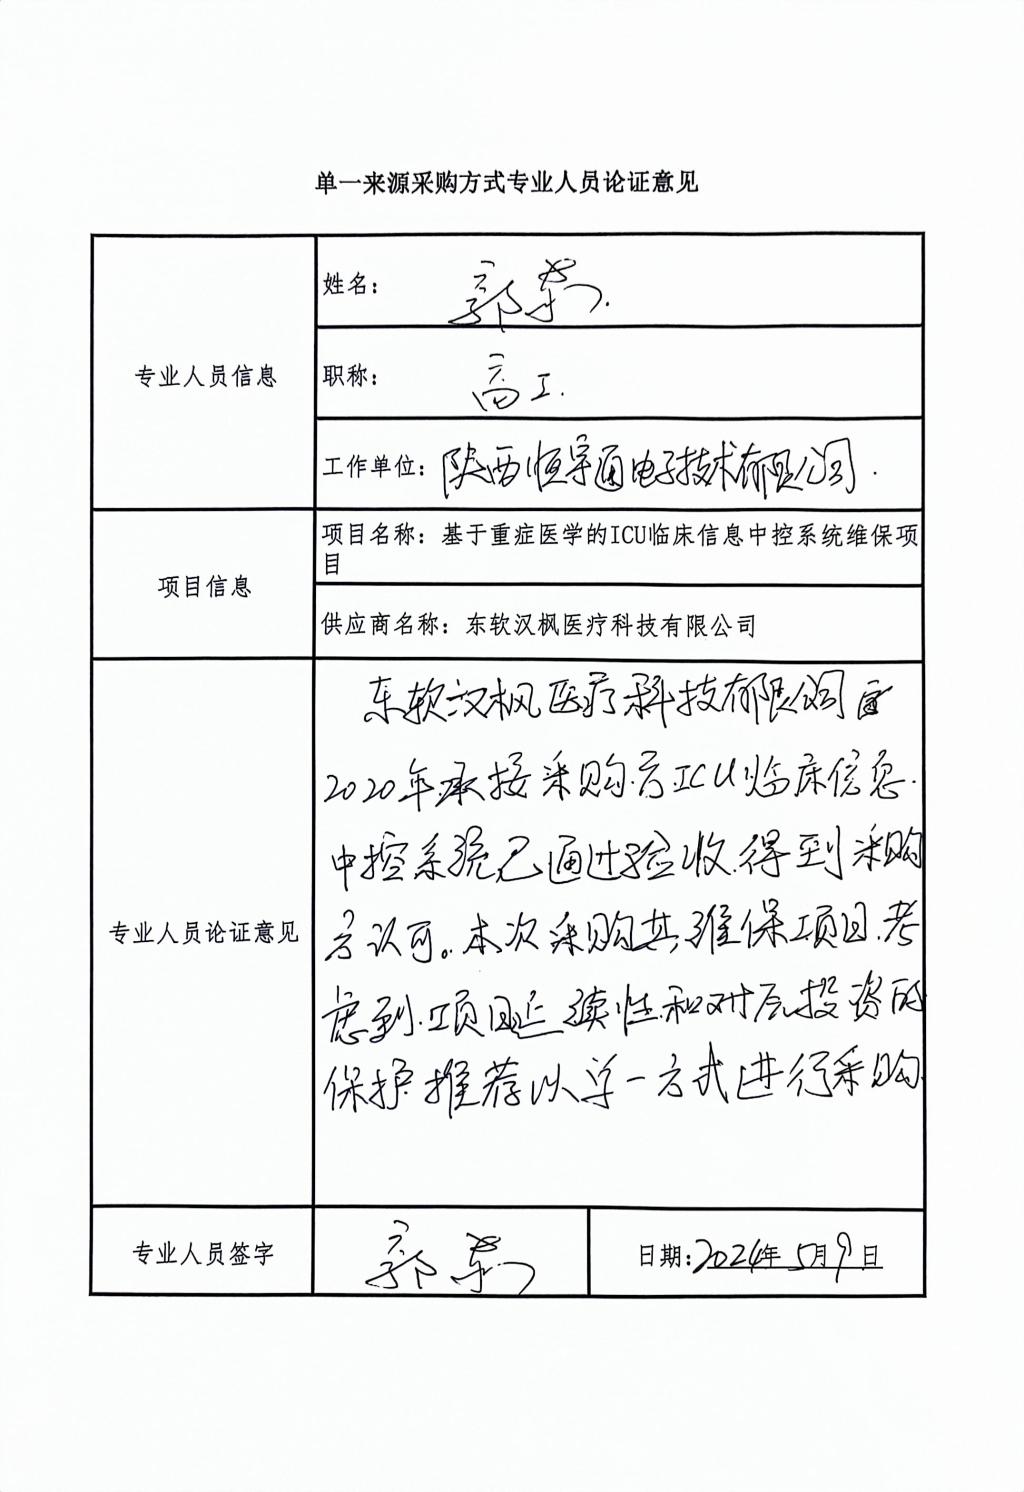 单一来源采购方式专业人员论证意见
专业人员信息
姓名：郭
职称：高工.
工作单位：陕西恒宇通电子技术有限公司.
项目信息
项目名称：基于重症医学的ICU临床信息中控系统维保项
目
供应商名称：东软汉枫医疗科技有限公司
专业人员论证意见
东软汉枫医疗科技有限公司
2020年承接采购方ICU临床信息
中控系统已通过验收.得到采购
方认可。本次采购其维保项目.考
虑到.项目延续性和对原投资的
保护.推荐以单一方式进行采购.
专业人员签字
郭
日期：2024年5月9日